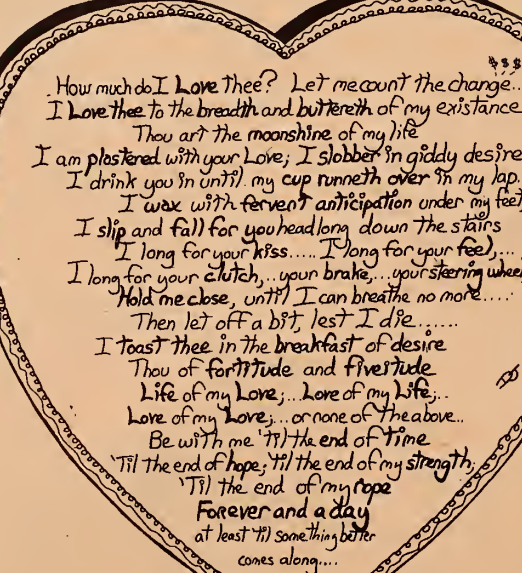 $$$
How much do I Love thee? Let me count the change...
I Love thee to the breadth and buttereth of my existance
Thou art the moonshine of my life
I am plastered with your Love; I slobber in giddy desire
I drink you in until my cup runneth over in my lap.
I wax with fervent anticipation under my feet
I slip and fall for you headlong down the stairs
I long for your kiss..... I long for your feel,...
I long for your clutch,...your brake,...your steering wheel
Hold me close, until I can breathe no more....
Then let off a bit, lest I die......
I toast thee in the breakfast of desire
Thou of fortitude and fivetitude
Life of my Love;...Love of my Life;..
Love of my Love;...or none of the above..
Be with me 'til the end of time
'Til the end of hope; 'til the end of my strength;
'Til the end of my rope
Forever and a day
at least 'til something better
comes along....